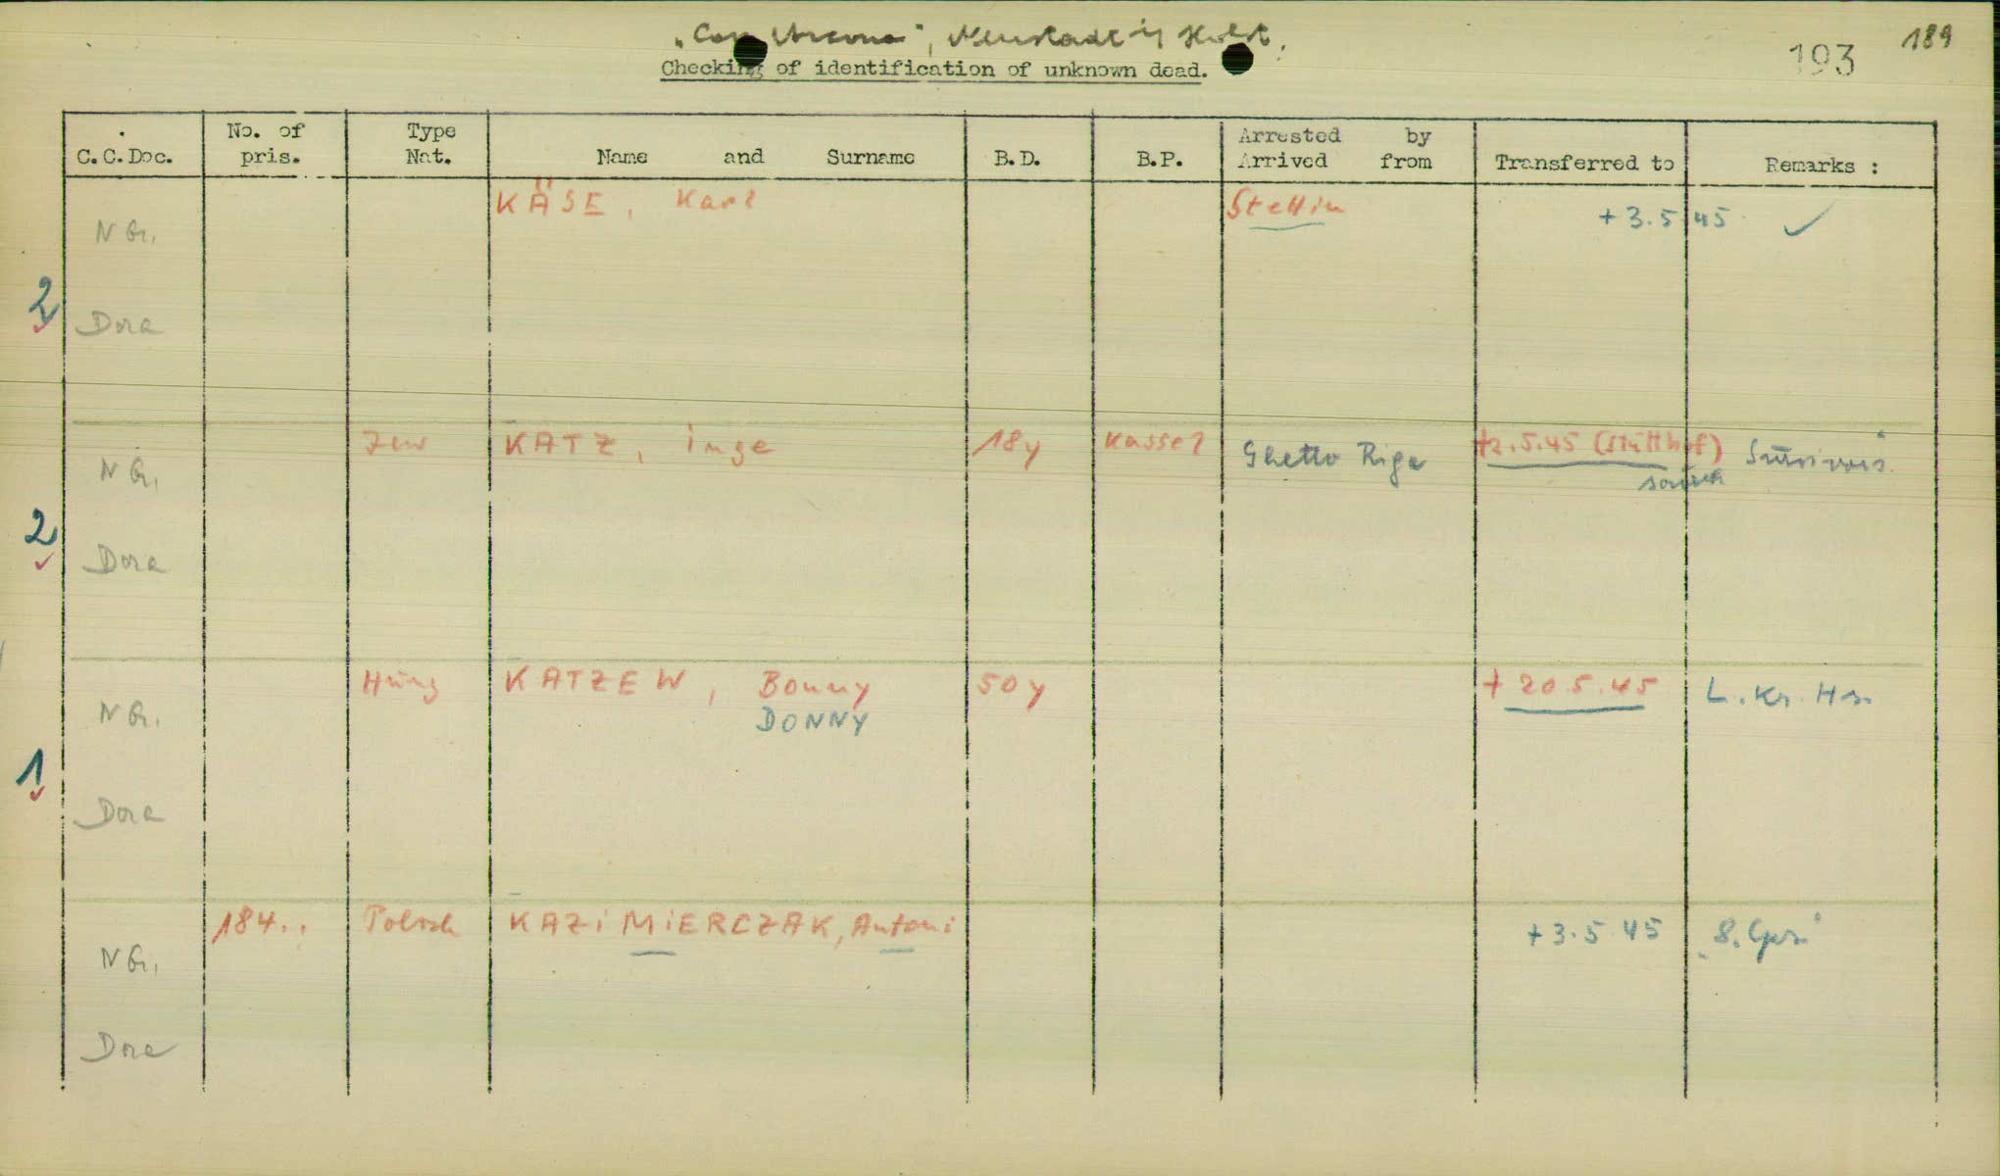 "Cap Arcona", Neustadt i/ Holst.
189
193
Checking of identification of unknown dead.
C.C.Doc.
No. of pris.
Type Nat.
Name and Surname
B.D.
B.P.
Arrested by
Arrived from
Transferred to
Remarks :
KÄSE, Karl Stettin +3.5.45 ✓
N G.
2
Dora
Jew KATZ, Inge 18y Kassel Ghetto Riga +2.5.45 (Stutthof)
N G.
2
Dora
Hung KATZEW, Bonny 50y + 20.5.45 L. Kr. Hs.
DONNY
N G.
1
Dora
184.. Polish KAZiMiERCZAK, Antoni +3.5.45
N G.
Dora